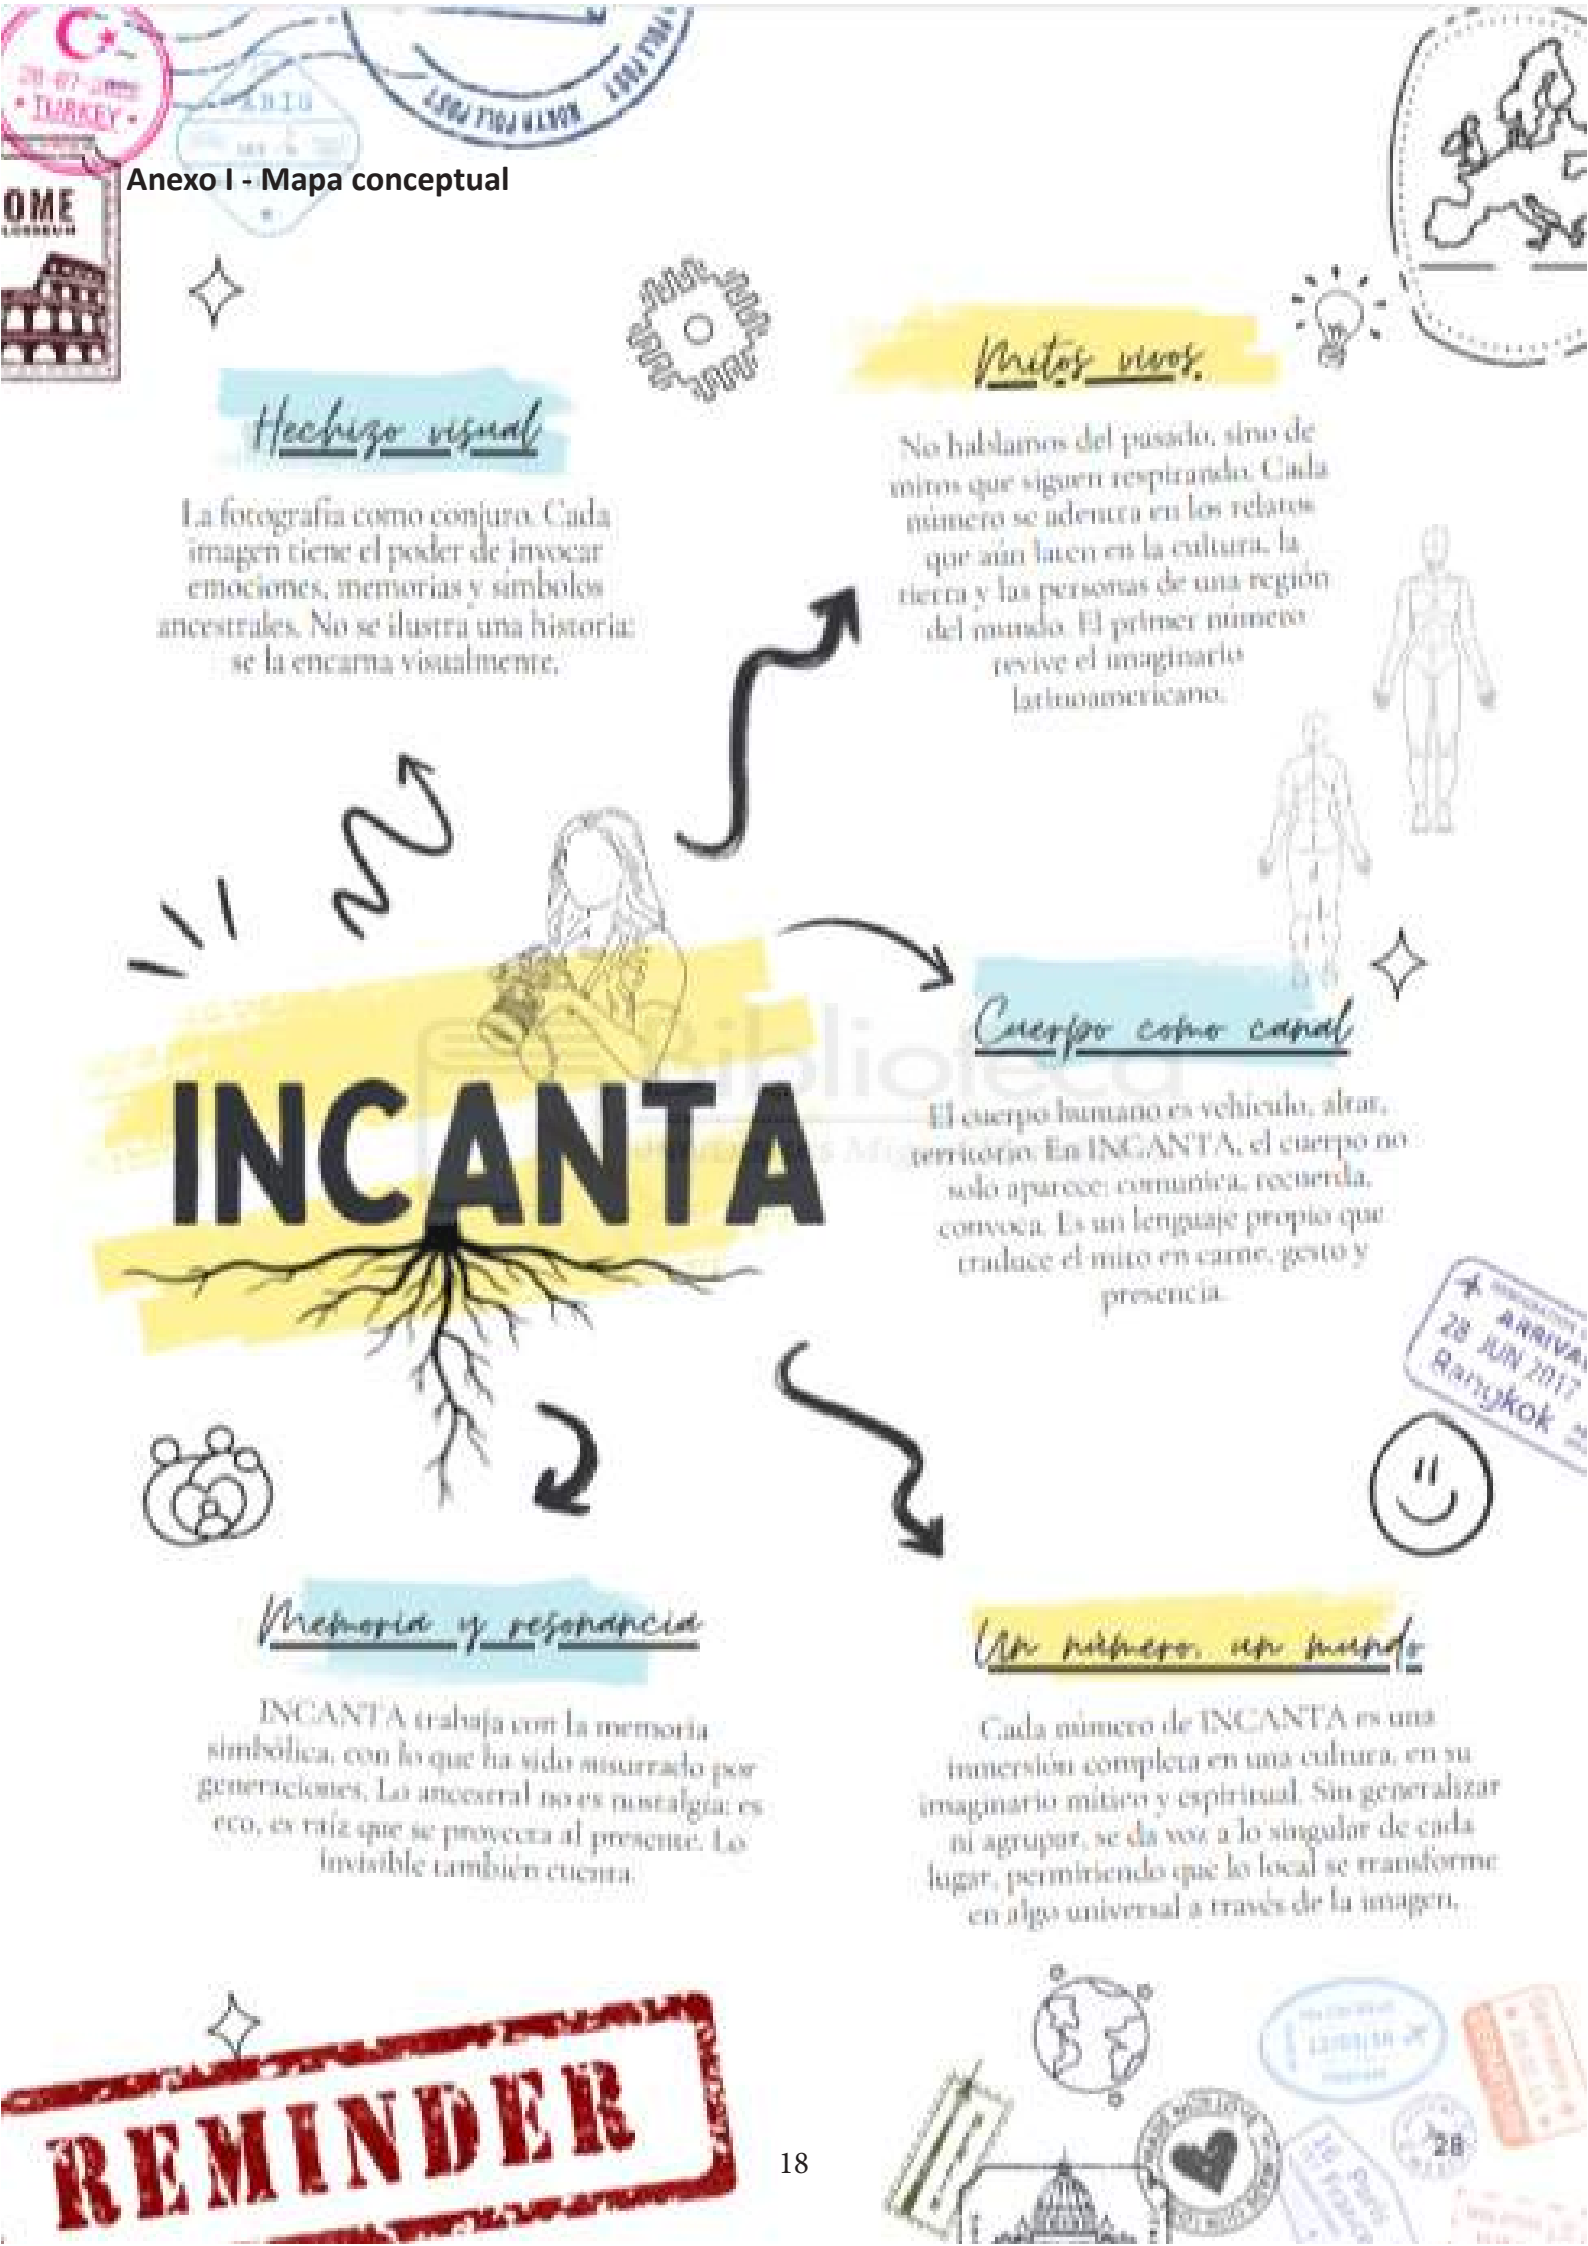 28-07-
• TURKEY •
NORTH POLE POST
OME
Anexo I - Mapa conceptual
Hechizo visual
La fotografía como conjuro. Cada
imagen tiene el poder de invocar
emociones, memorias y símbolos
ancestrales. No se ilustra una historia:
se la encarna visualmente.
Mitos vivos.
No hablamos del pasado, sino de
mitos que siguen respirando. Cada
número se adentra en los relatos
que aún laten en la cultura, la
tierra y las personas de una región
del mundo. El primer número
revive el imaginario
latinoamericano.
INCANTA
Biblioteca
Cuerpo como canal
El cuerpo humano es vehículo, altar,
territorio. En INCANTA, el cuerpo no
solo aparece: comunica, recuerda,
convoca. Es un lenguaje propio que
traduce el mito en carne, gesto y
presencia.
ARRIVAL
28 JUN 2017
Bangkok
Memoria y resonancia
INCANTA trabaja con la memoria
simbólica, con lo que ha sido susurrado por
generaciones. Lo ancestral no es nostalgia: es
eco, es raíz que se proyecta al presente. Lo
invisible también cuenta.
Un número, un mundo
Cada número de INCANTA es una
inmersión completa en una cultura, en su
imaginario mítico y espiritual. Sin generalizar
ni agrupar, se da voz a lo singular de cada
lugar, permitiendo que lo local se transforme
en algo universal a través de la imagen.
REMINDER
18
MADE WITH LOVE
28
16
Paris
France